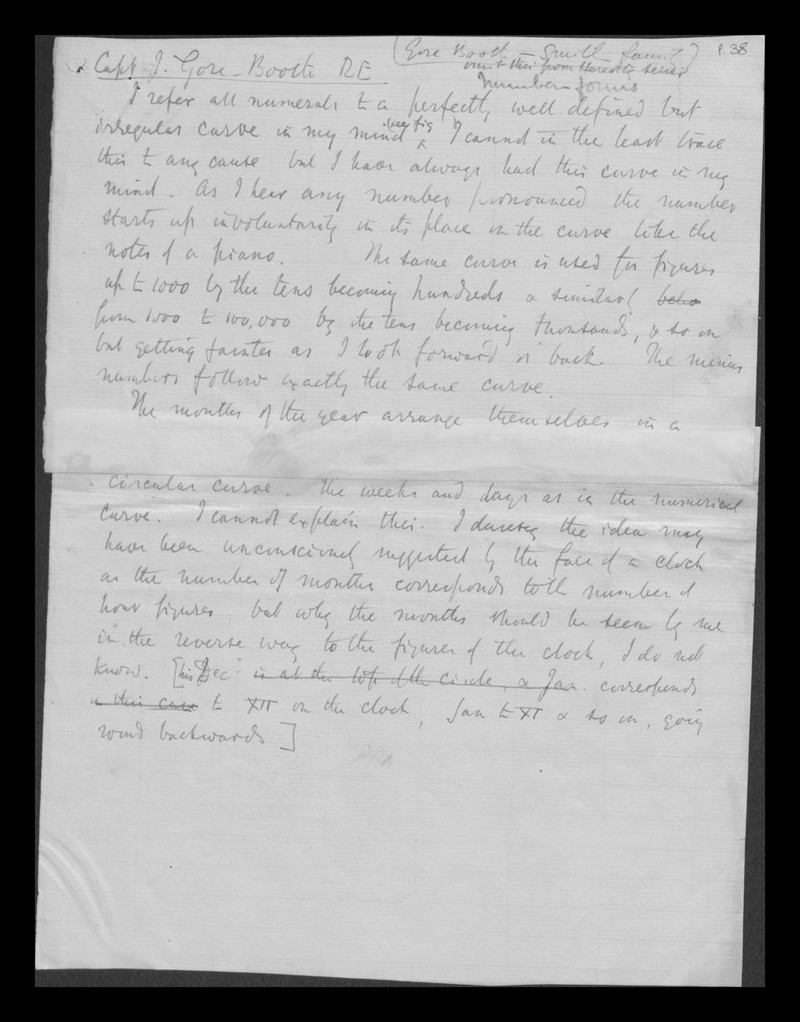 (Gore Booth — Smith family) P. 38
omit this from Heredity series
Capt J. Gore-Booth RE Number-forms
I refer all numerals to a perfectly well defined but
irregular curve in my mind (see fig) I cannot in the least trace
this to any cause but I have always had this curve in my
mind. As I hear any number pronounced the number
starts up involuntarily in its place in the curve like the
notes of a piano. The same curve is used for figures
up to 1000 by the tens becoming hundreds & similarly below
from 1000 to 100,000 by the tens becoming thousands, & so on
but getting fainter as I look forward or back. The minus
numbers follow exactly the same curve.
The months of the year arrange themselves in a
circular curve. The weeks and days as in the numerical
curve. I cannot explain this. I daresay the idea may
have been unconsciously suggested by the face of a clock
as the number of months corresponds to the number of
hour figures, but why the months should be seen by me
in the reverse way to the figures of the clock, I do not
know. [his Dec is at the top of the circle, & Jan. corresponds
in this case to XII on the clock, Jan to XI & so on, going
round backwards]